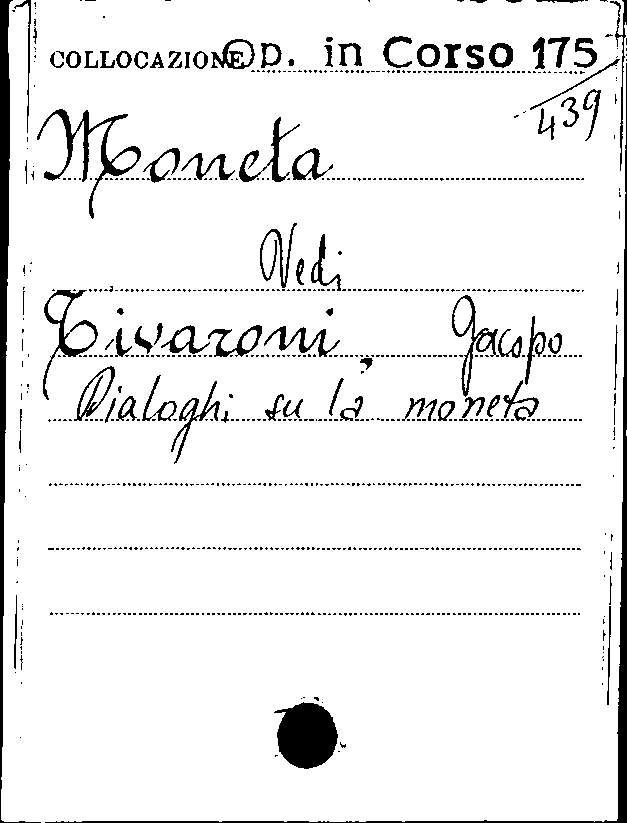 COLLOCAZIONE Op. in Corso 175
439
Moneta
Vedi
Tivaroni, Jacopo
Dialoghi su la moneta